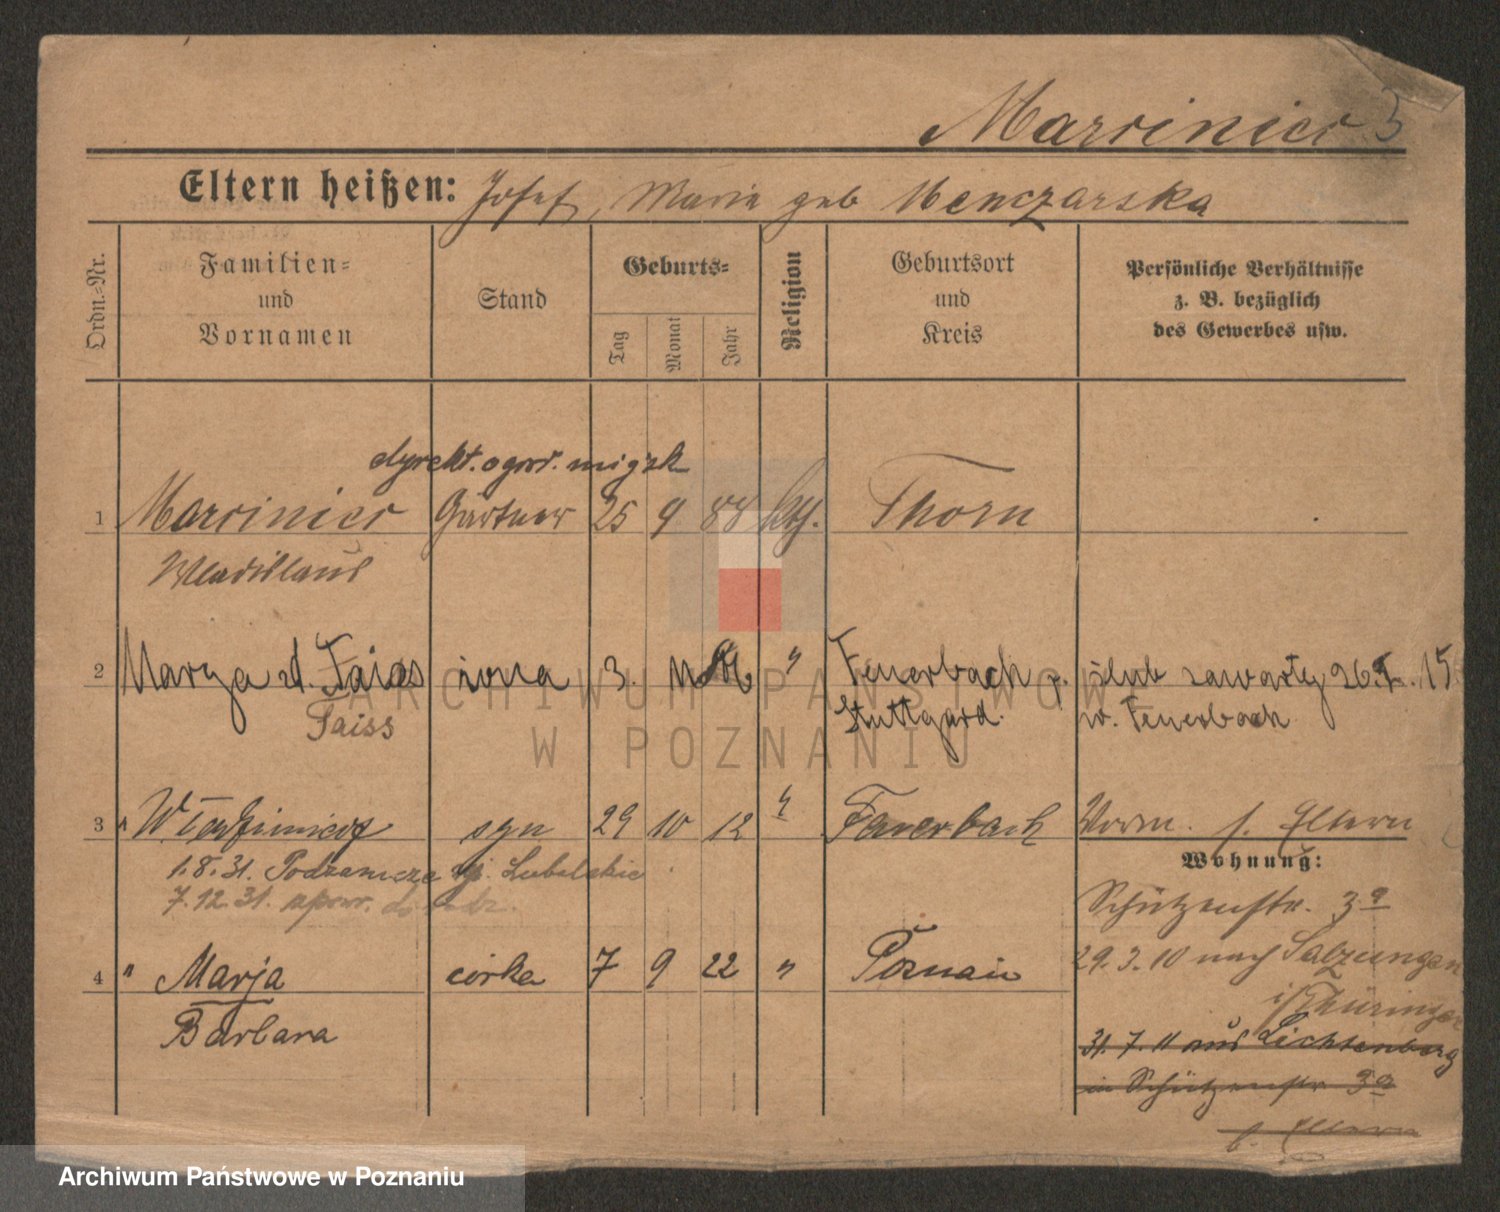 Marciniec 3
Eltern heißen: Josef, Maria geb Menczarska
Ordn.-Nr.
Familien-
und
Vornamen
Stand
Geburts-
Tag
Monat
Jahr
Religion
Geburtsort
und
Kreis
Persönliche Verhältnisse
z. B. bezüglich
des Gewerbes usw.
dyrekt. ogrod. miejsk
1 Marciniec Gärtner 25 9 88 kth. Thorn
Wladislaus
2 Marya d. Faiss żona 3. " Feuerbach p. ślub zawarty 15
Faiss Stuttgard. w. Feuerbach
3 " Włodzimierz syn 29 10 12 " Feuerbach Vorm. s. Eltern
1.8.31. Podzamcze Lubelskie
7.12.31. spow.
Wohnung:
Schützenstr. 3a
29.3.10 nach Salzungen
i/Thüringen
4 " Marja córka 7 9 22 " Poznań
Barbara
31.7.11 aus Lichtenberg
in Schützenstr 3a
b. Eltern
ARCHIWUM PAŃSTWOWE
W POZNANIU
Archiwum Państwowe w Poznaniu